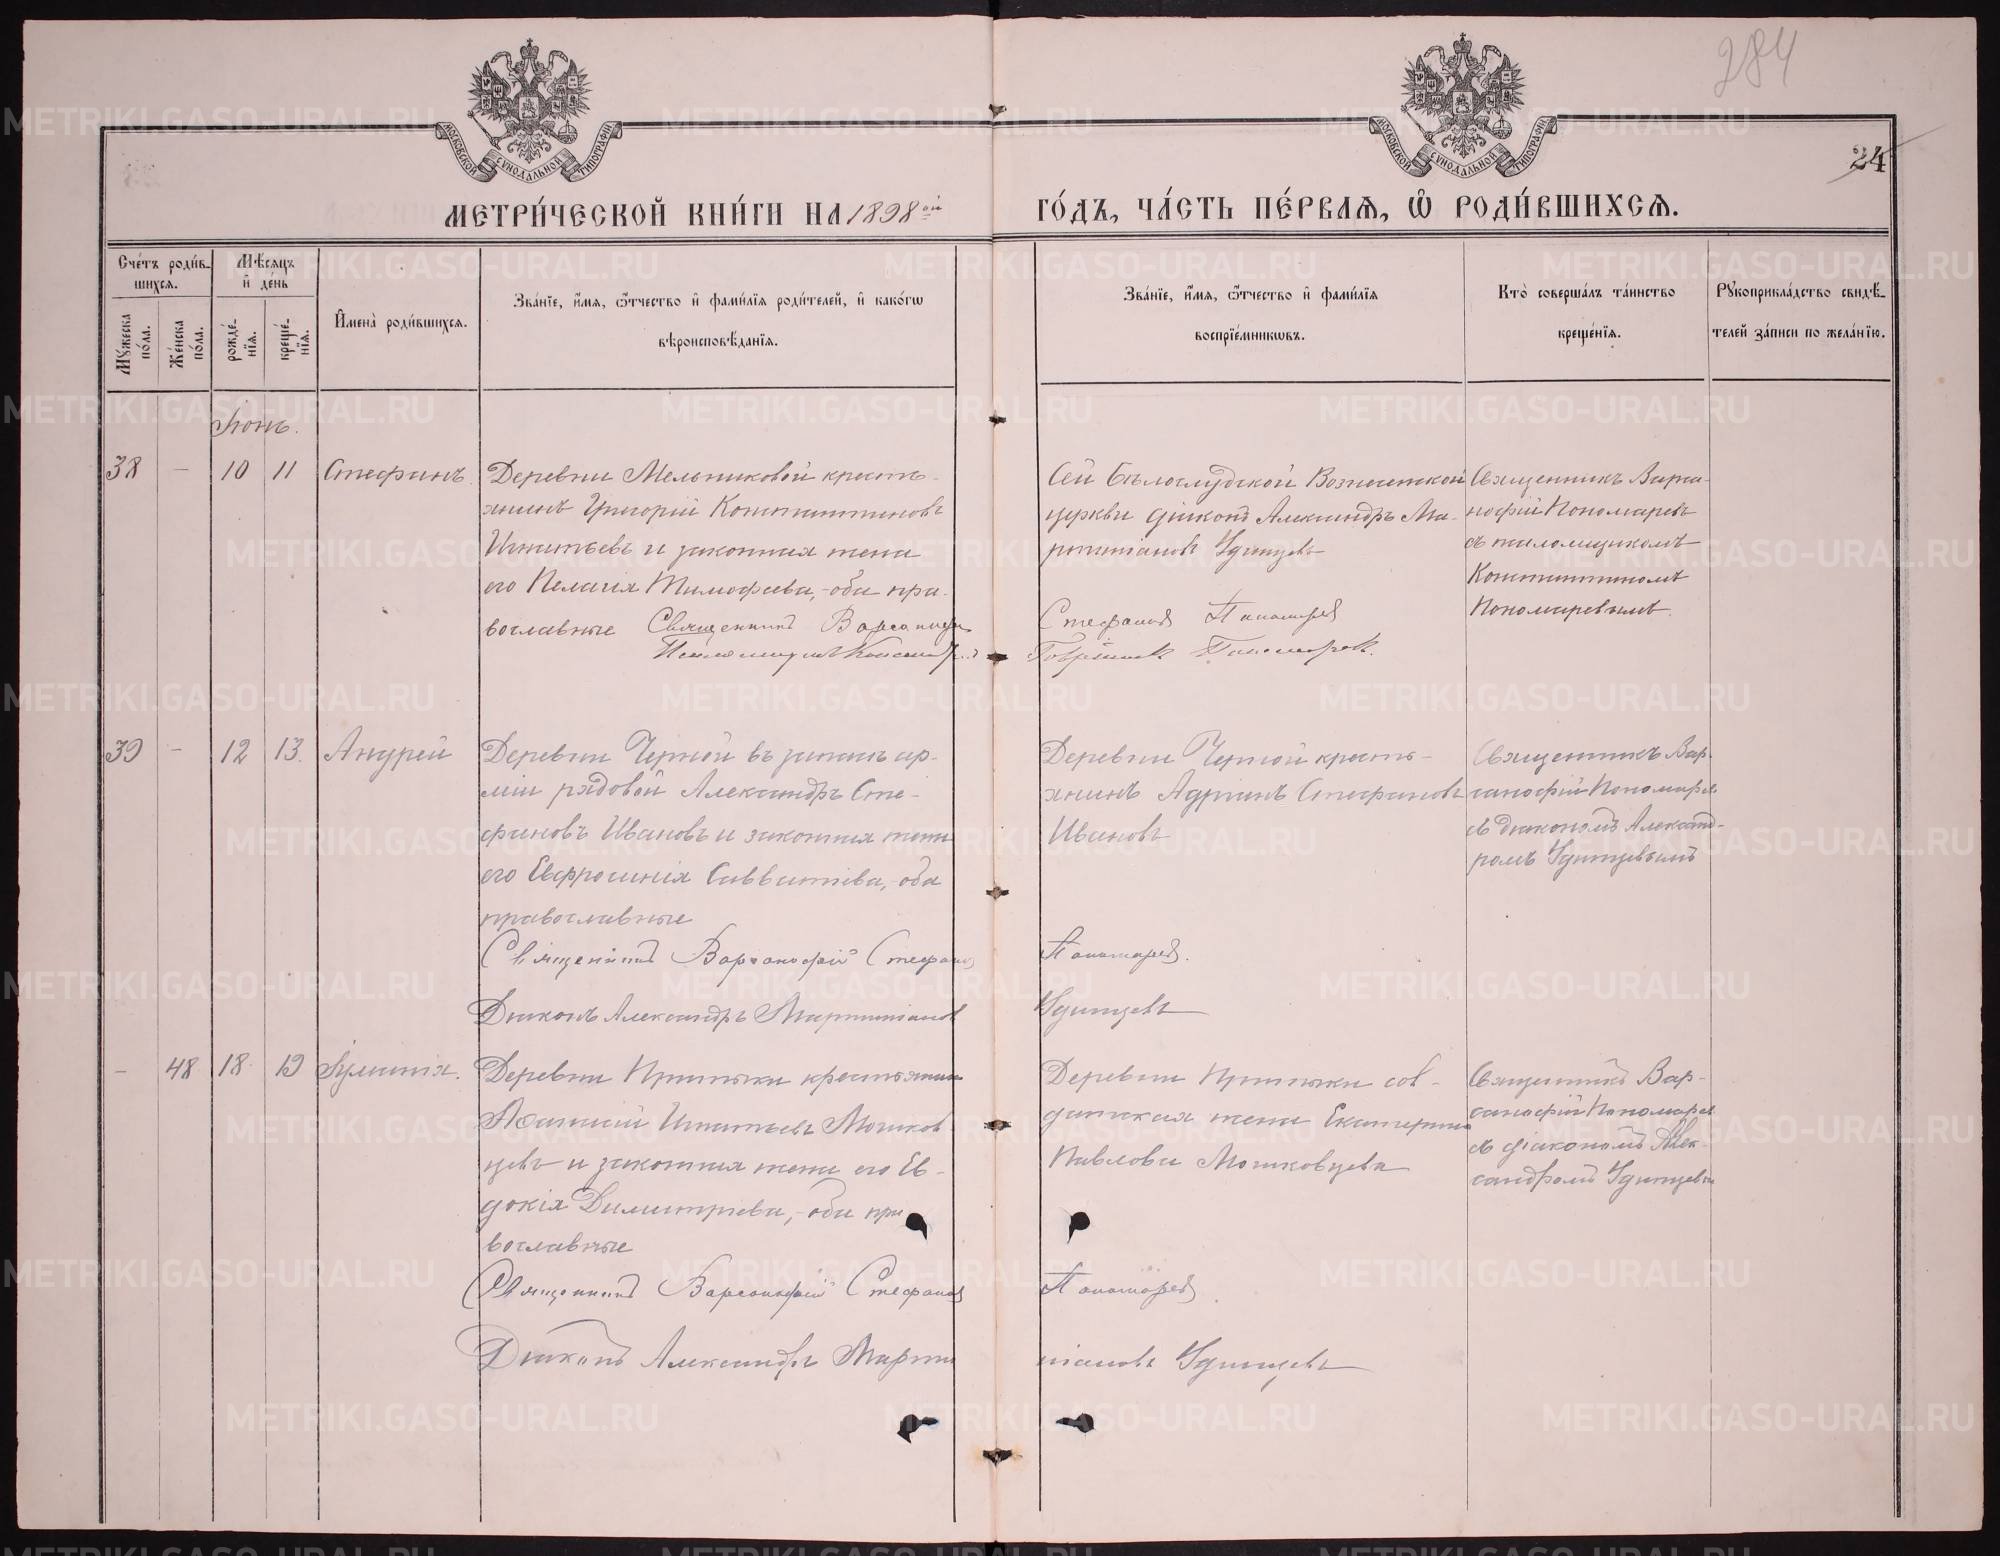 284
24
МОСКОВСКОЙ СѴНОДАЛЬНОЙ ТИПОГРАФІИ
МОСКОВСКОЙ СѴНОДАЛЬНОЙ ТИПОГРАФІИ
МЕТРИ́ЧЕСКОЙ КНИ́ГИ НА 1898 ой ГО́ДЪ, ЧА́СТЬ ПЕ́РВАЯ, Ѽ РОДИ́ВШИХСЯ.
Сче́тъ роди́в-
шихся.
Мꙋжеска по́ла.
Же́нска по́ла.
Мѣ́сяцъ и҆ де́нь
рожде́нїя.
креще́нїя.
И҆мена̀ роди́вшихся.
Зва́нїе, и҆́мя, ѻ҆́тчество и҆ фами́лїя роди́телей, и҆ како́гѡ
вѣроисповѣ́данїя.
Зва́нїе, и҆́мя, ѻ҆́тчество и҆ фами́лїя
воспрїе́мникѡвъ.
Кто̀ соверша́лъ та́инство
креще́нїя.
Рꙋкоприкла́дство свидѣ́-
телей за́писи по жела́нїю.
Іюнь.
38 - 10 11 Стефанъ
Деревни Мельниковой кресть-
янинъ Григорій Константиновъ
Игнатьевъ и законная жена
его Пелагія Тимофеева,-оба пра-
вославные Священникъ Варсонофій
Псаломщикъ Констант
Сей Бѣлослудской Вознесенской
церкви діаконъ Александръ Ма-
ртиніановъ Удинцевъ
Стефановъ Пономаревъ
Пономарев.
Священникъ Варса-
нофій Пономаревъ
съ псаломщикомъ
Константиномъ
Пономаревымъ.
39 - 12 13. Андрей
Деревни Черной въ запасѣ ар-
міи рядовой Александръ Сте-
фановъ Ивановъ и законная жена
его Евфросинія Савватіева,-оба
православные
Священникъ Варсонофій Стефановъ Пономаревъ.
Діаконъ Александръ Мартиніановъ Удинцевъ
Деревни Черной кресть-
янинъ Адріанъ Стефановъ
Ивановъ
Священникъ Вар-
санофій Пономарев
съ діакономъ Александ-
ромъ Удинцевымъ
- 48 18 19 Іулианія.
Деревни Притыки крестьянин
Афанасій Игнатьевъ Мошков-
цевъ и законная жена его Ев-
докія Димитріева,-оба пра
вославные
Священникъ Варсонофій Стефановъ Пономаревъ
Діаконъ Александръ Мартиніановъ Удинцевъ
Деревни Притыки сол-
датская жена Екатерина
Павлова Мошковцева
Священникъ Вар-
санофій Пономарев
съ діакономъ Алек-
сандромъ Удинцевы
METRIKI.GASO-URAL.RU